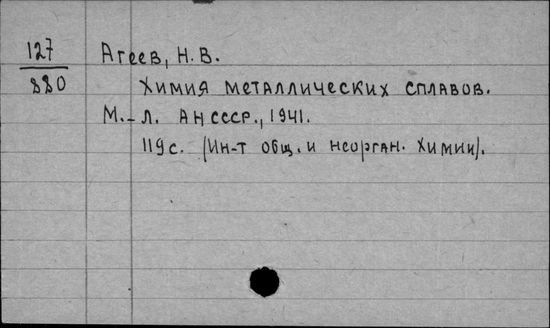 127 Агеев, Н. В.
880 Химия металлических сплавов.
М.-Л. АН СССР., 1941.
119 с. (Ин-т общ. и неорган. Химии).